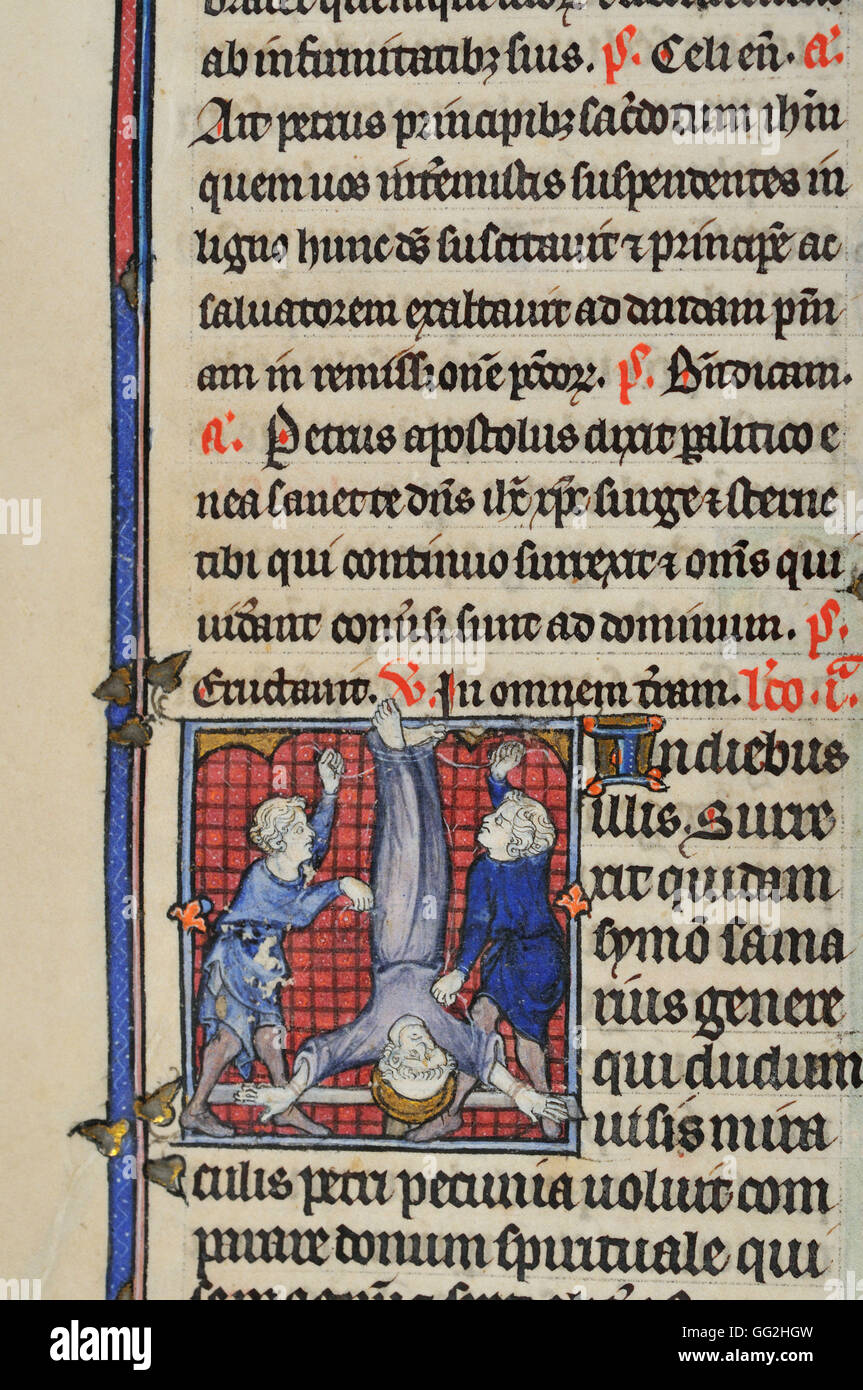 ab infirmitatibꝫ suis. p̃. Celi eñ. a͛.
Ait petrus principibꝫ sac̃dotum ih̃m
quem uos int̃emistis suspendentes in
ligno hunc ds̃ suscitauit ⁊ principẽ ac
saluatorem exaltauit ad dandam pñi
am in remissionẽ pc̃toꝝ. p̃. Bñdicam.
a͛. Petrus apostolus dixit ꝑalitico e
nea sanet te dñs ih̃c xp̃c surge ⁊ sterne
tibi qui continuo surrexit ⁊ oñis qui
uid̾ant conũsi sunt ad dominum. p̃.
Eructauit. V̾. In omnem t̾ram. lc̃o. i.ᵃ
In diebus
illis. Surre
xit quidam
symõ sama
rius genere
qui dudum
uisis mira
culis petri pecunia uoluit com
parare donum spirituale qui
alamy
alamy stock photo
Image ID: GG2HGW
www.alamy.com